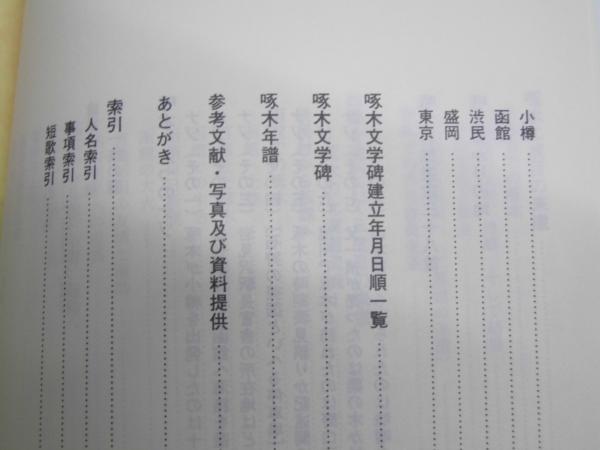 小樽
函館
渋民
盛岡
東京
啄木文学碑建立年月日順一覧
啄木文学碑
啄木年譜
参考文献・写真及び資料提供
あとがき
索引
人名索引
事項索引
短歌索引